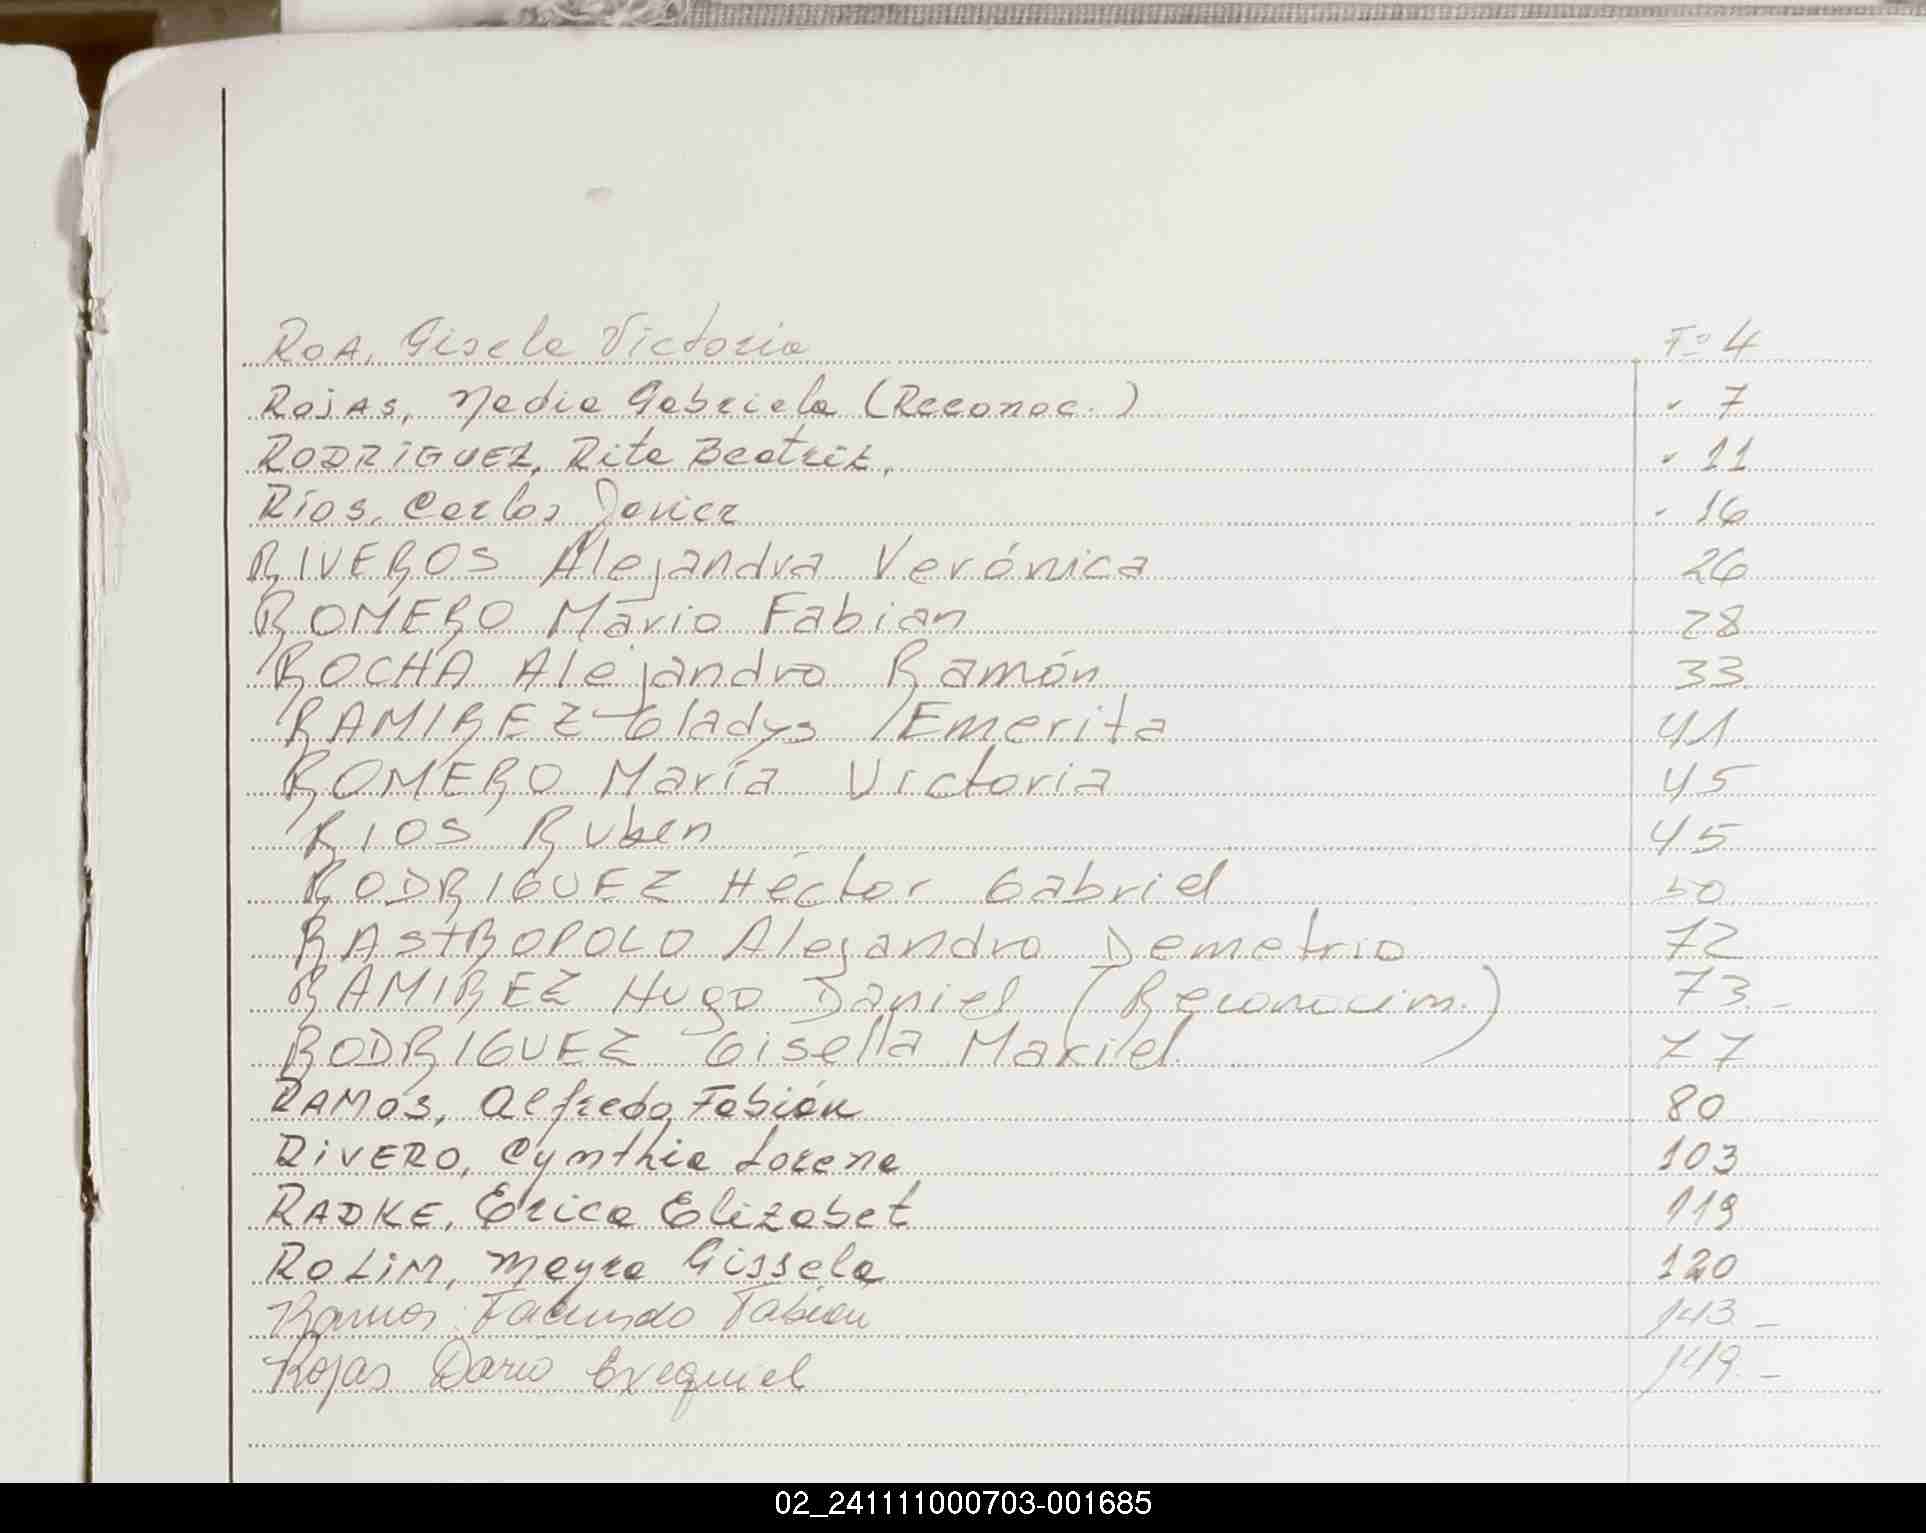 ROA, Gisela Victoria Fº 4
ROJAS, Nadia Gabriela (Reconoc.) " 7
RODRÍGUEZ, Rita Beatriz, " 11
RÍOS, Carlos Javier " 16
RIVEROS Alejandra Verónica 26
ROMERO Mario Fabian 28
ROCHA Alejandro Ramón 33
RAMIREZ Gladys Emerita 41
ROMERO María Victoria 45
RIOS Ruben 45
RODRIGUEZ Héctor Gabriel 50
RASTROPOLO Alejandro Demetrio 72
RAMIREZ Hugo Daniel (Reconocim.) 73.-
RODRIGUEZ Gisella Mariel. 77
RAMOS, Alfredo Fabián 80
RIVERO, Cynthia Lorena 103
RADKE, Erica Elizabet 119
ROLIM, Mayra Gissela 120
Ramos Facundo Fabián 143.-
Rojas Dario Exequiel 149.-
02_241111000703-001685